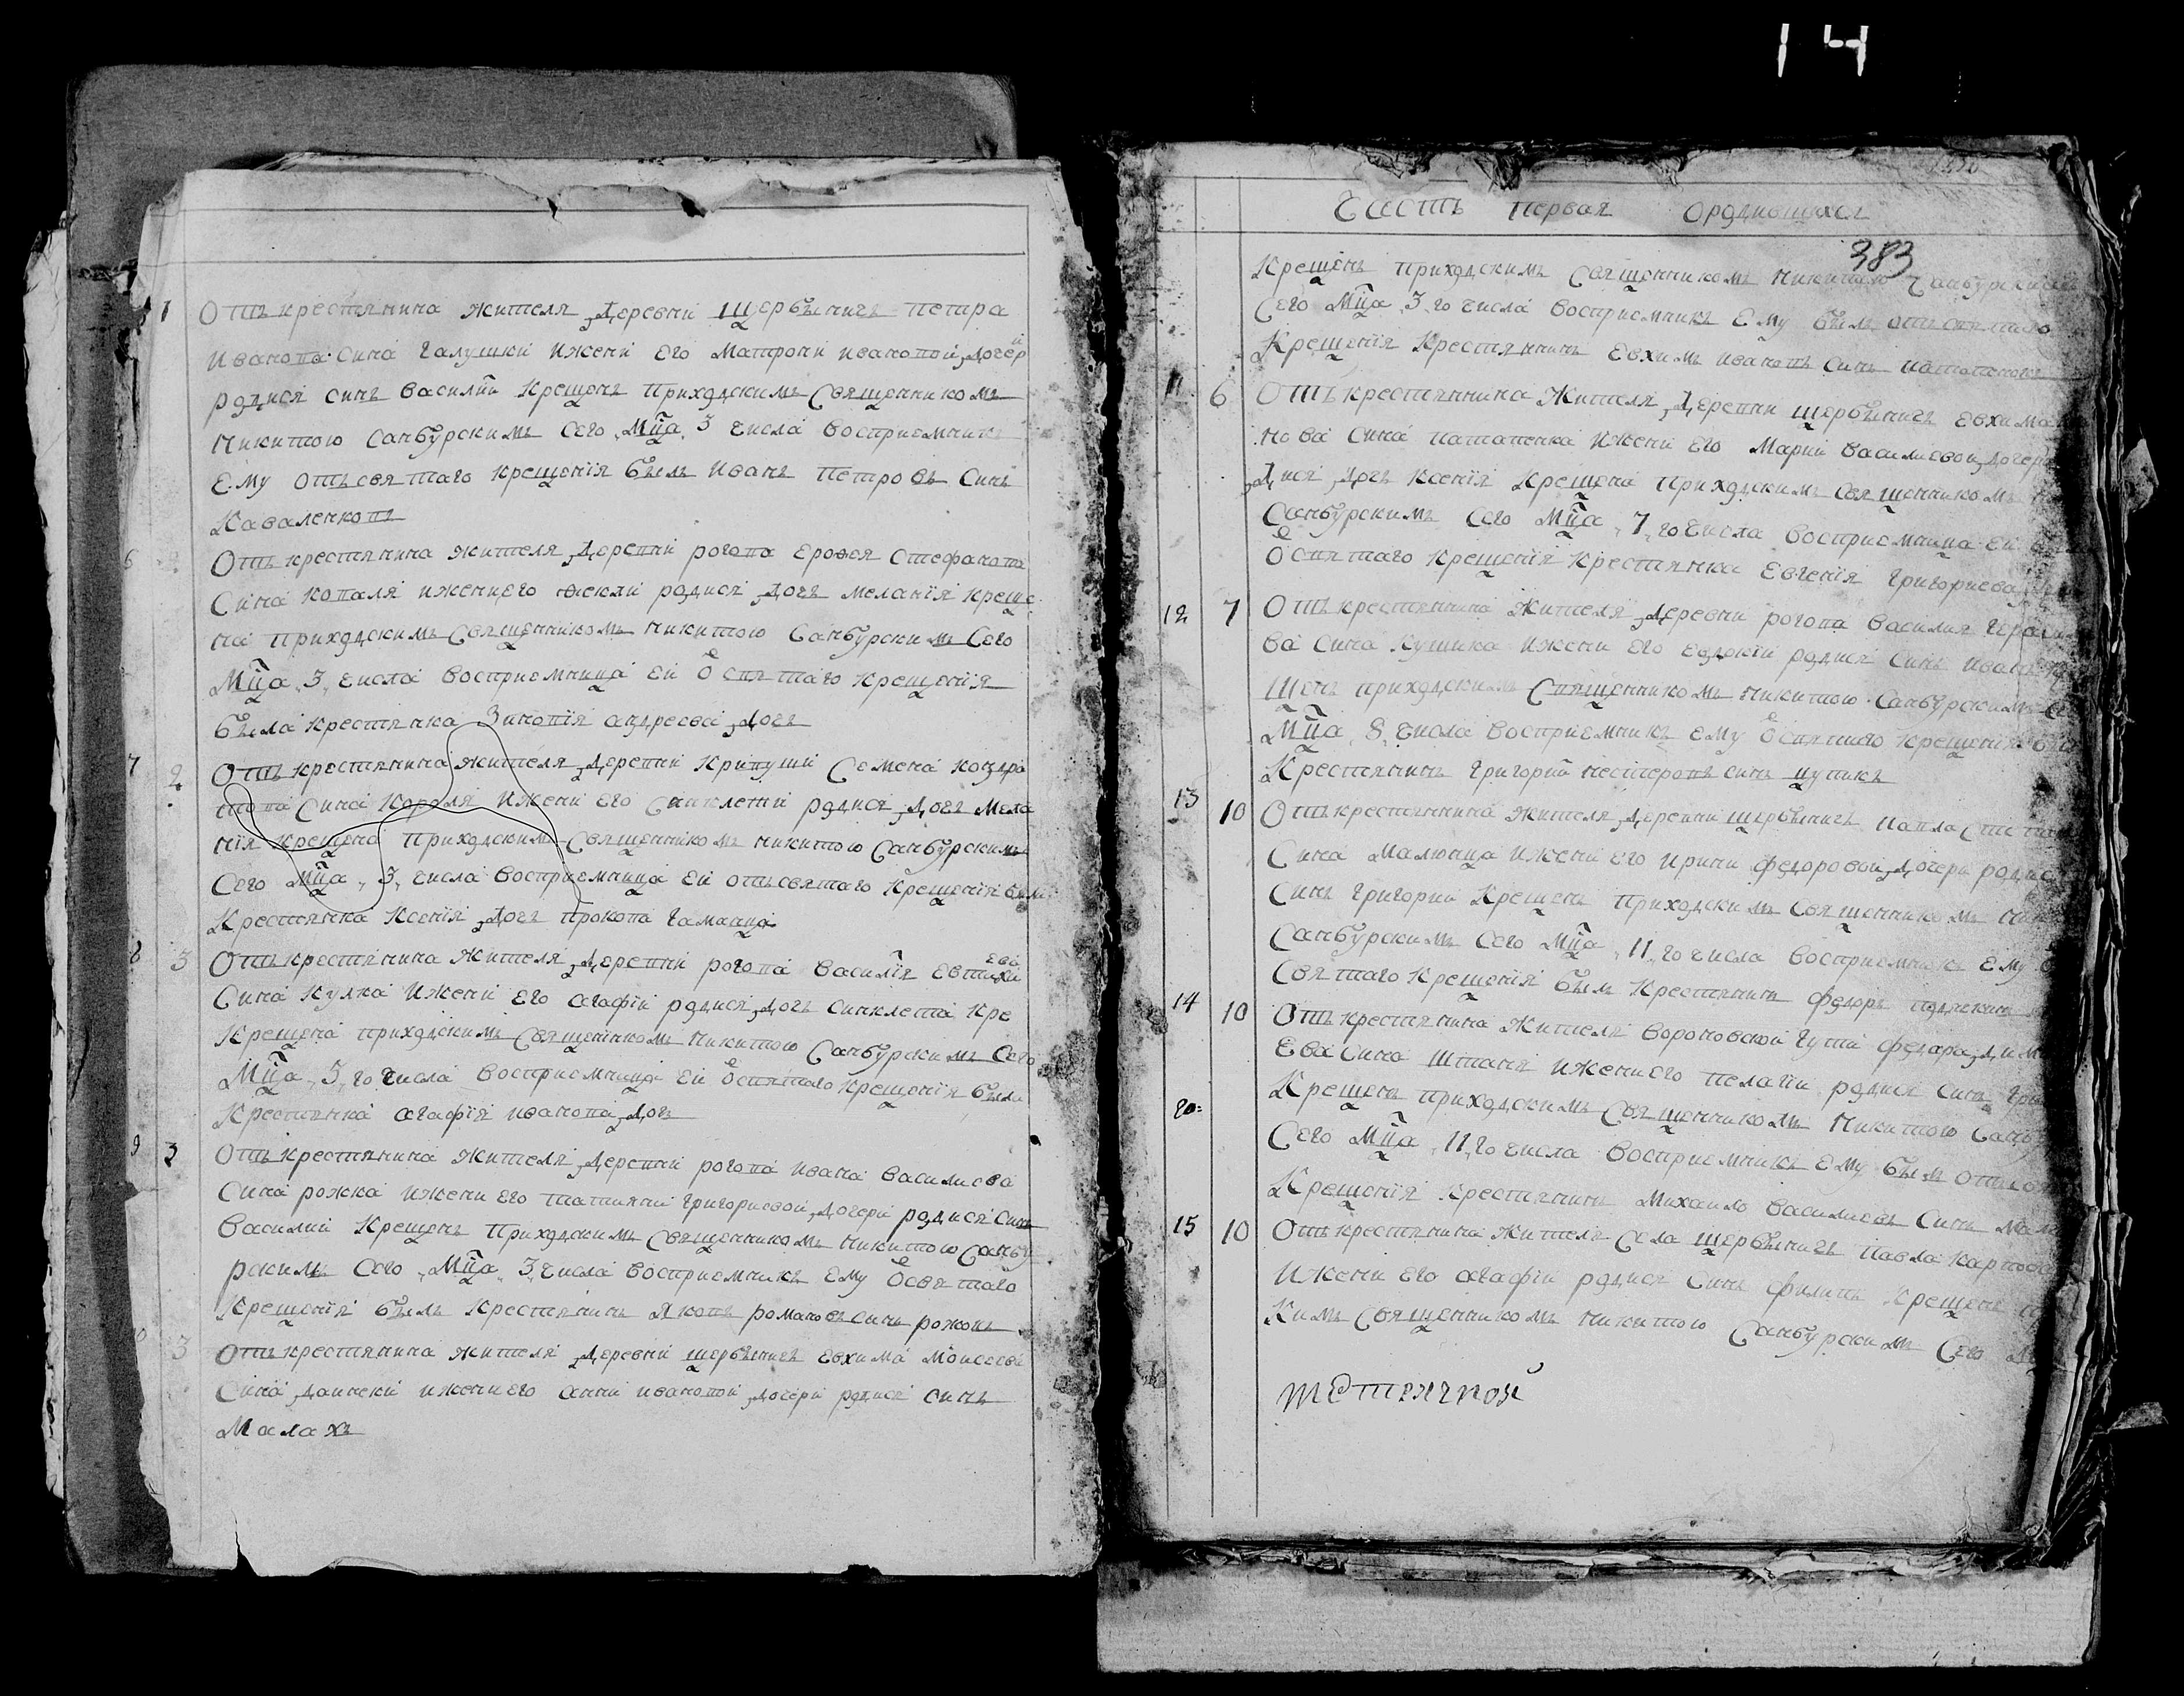 14
1 Отъ крестянина жителя деревни Щербѣничъ петра
иванова сина галушки ижени его матрони ивановой дочери
родися синъ василий крещенъ приходскимъ священникомъ
никитою санбурскимъ сего мца 3 числа восприемникъ
ему отъ святаго крещения бѣлъ иванъ петровъ синъ
каваленковъ
6 Отъ крестянина жителя деревни рогова ерофея стефанова
сина коваля ижени его феклы родися дочъ мелания креще
на приходскимъ священникомъ никитою санбурскимъ сего
мца 3 числа восприемница ей ѿ святаго крещения
бѣла крестянка зиновия андреева дочъ
7 2 Отъ крестянина жителя деревни кривуши семена кондра
това сина короля ижени его синклетии родися дочъ мела
ния крещена приходскимъ священникомъ никитою санбурскимъ
сего мца 3 числа восприемница ей отъ святаго крещения бѣла
крестянка ксения дочъ прокопа гаманца
8 3 Отъ крестянина жителя деревни рогова василия евтихиева
сина кулка ижени его агафии родися дочъ синклета кре
крещена приходскимъ священникомъ никитою санбурскимъ сего
мца 3 го числа восприемница ей ѿ святаго крещения бѣла
крестянка агафия иванова дочъ
9 3 Отъ крестянина жителя деревни рогова ивана василиева
сина рожка ижени его татияни григориевой дочери родися синъ
василий крещенъ приходскимъ священникомъ никитою санбу
рскимъ сего мца 3 числа восприемникъ ему ѿ святаго
крещения бѣлъ крестянинъ яковъ романовъ синъ рожокъ
3 Отъ крестянина жителя деревни щербѣничъ евхима моисеева
сина ижени его анни ивановой дочери родися синъ
малахъ
Часть первая ородившихся
383
крещенъ приходскимъ священникомъ никитою санбурскимъ
сего мца 3 го числа восприемникъ ему бѣлъ отъ святаго
крещения крестянинъ евхимъ ивановъ синъ
11 6 Отъ крестянина жителя деревни щербѣничъ евхима
нова сина ижени его марии василиевой дочери
дися дочъ ксения крещена приходскимъ священникомъ
санбурскимъ сего мца 7 го числа восприемница ей
ѿ святаго крещения крестянка евгения григориева
12 7 Отъ крестянина жителя деревни рогова василия гераси
ва сина кушика ижени его евдокии родися синъ иванъ
щенъ приходскимъ священникомъ никитою санбурскимъ
мца 8 числа восприемникъ ему ѿ святаго крещения бѣлъ
крестянинъ григорий нестеровъ синъ цупикъ
13 10 Отъ крестянина жителя деревни щербѣничъ павла
сина малюнца ижени его ирини федоровой дочери родися
синъ григорий крещенъ приходскимъ священникомъ
санбурскимъ сего мца 11 го числа восприемникъ ему
святаго крещения бѣлъ крестянинъ федоръ
14 10 Отъ крестянина жителя вороновской гути федара
ева сина штаня ижени его пелагии родися синъ
крещенъ приходскимъ священникомъ никитою
20:
сего мца 11 го числа восприемникъ ему бѣлъ отъ
крещения крестянинъ михаило василиевъ синъ
15 10 Отъ крестянина жителя села щербѣничъ павла карпова
ижени его агафии родися синъ филипъ крещенъ
кимъ священникомъ никитою санбурскимъ сего